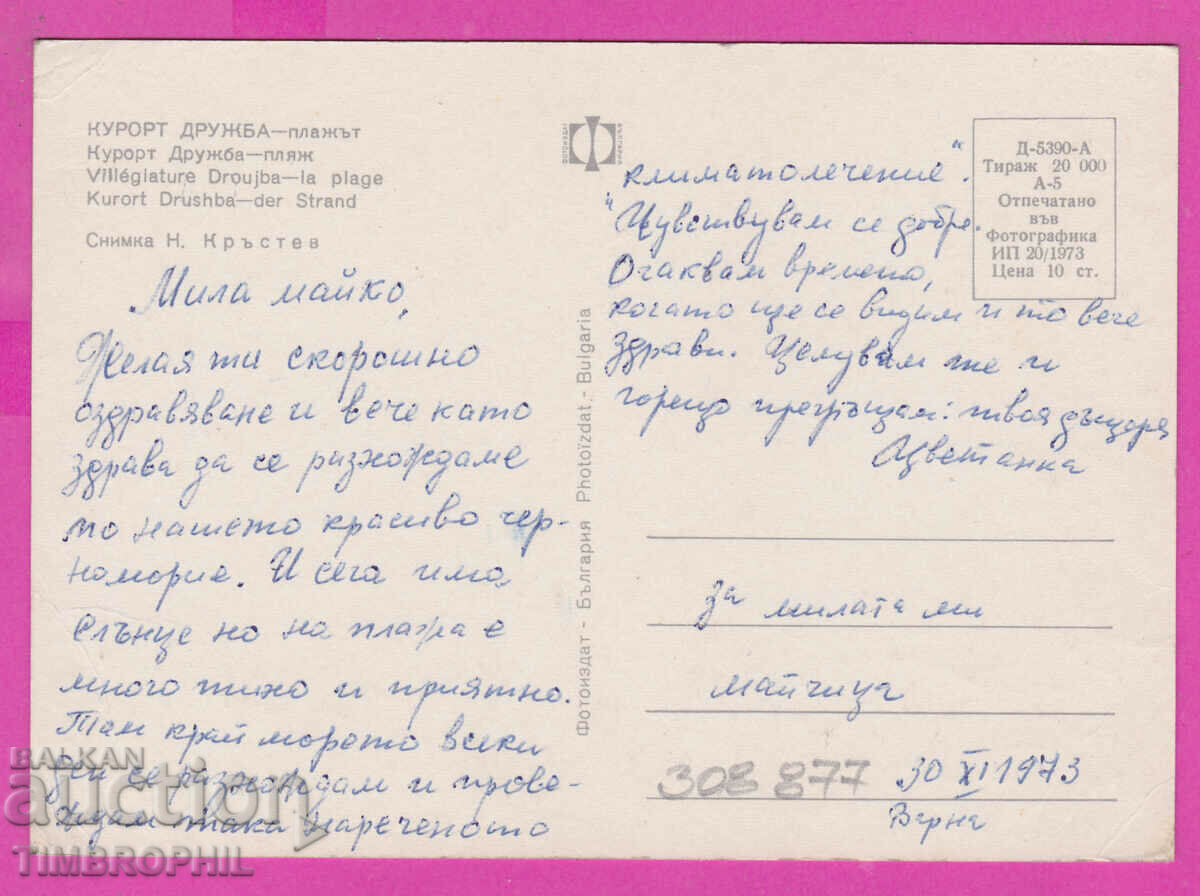 КУРОРТ ДРУЖБА—плажът
Курорт Дружба—пляж
Villégiature Droujba—la plage
Kurort Drushba—der Strand
Снимка Н. Кръстев
Мила майко,
Желая ти скорошно
оздравяване и вече като
здрава да се разхождаме
по нашето красиво чер-
номорие. И сега има
слънце но на плажа е
много тихо и приятно.
Там край морето всеки
ден се разхождам и прове-
ждам така нареченото
Фотоиздат - България Photoïzdat - Bulgaria
ФОТОИЗДАТ
БЪЛГАРИЯ
климатолечение".
"Чувствувам се добре.
Очаквам времето,
когато ще се видим и то вече
здрави. Целувам те и
горещо прегръщам: твоя дъщеря
Цветанка
Д-5390-А
Тираж 20 000
А-5
Отпечатано
във
Фотографика
ИП 20/1973
Цена 10 ст.
За милата ми
майчица
308 877
30 XI 1973
Варна
BALKAN
auction
TIMBROPHIL